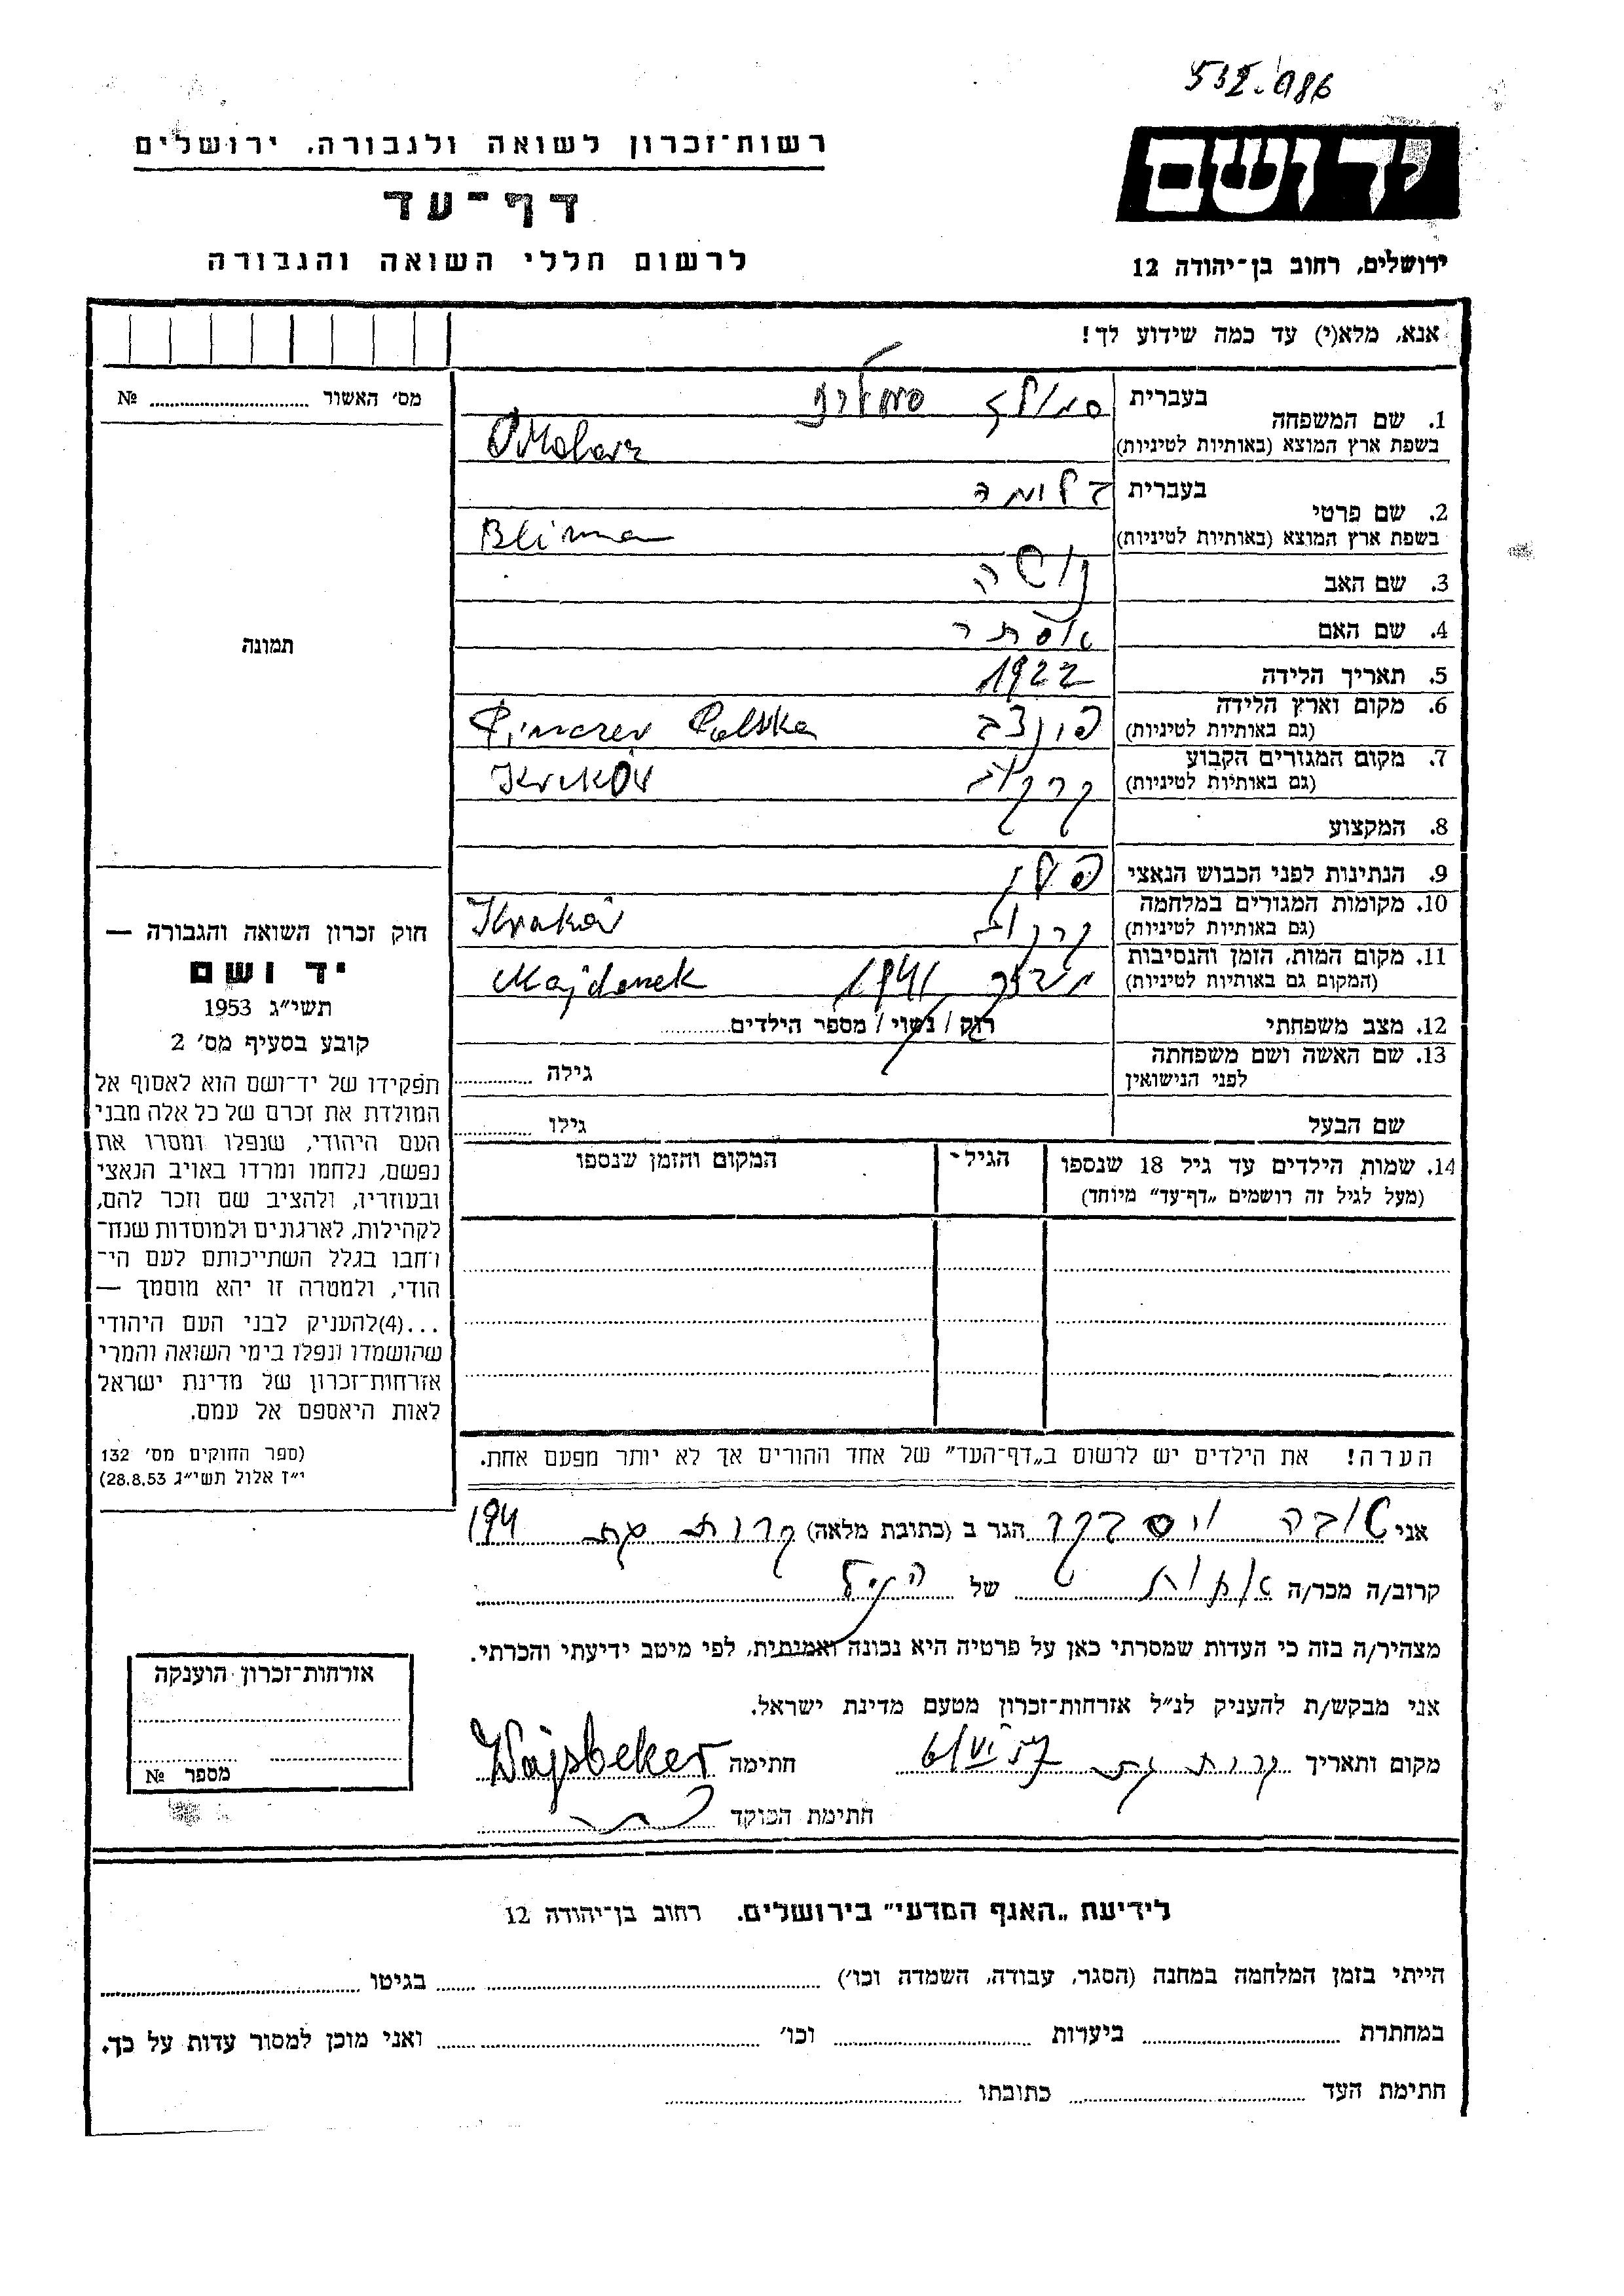 532.986
רשות־זכרון לשואה ולגבורה, ירושלים
יד ושם
דף־עד
לרשום חללי השואה והגבורה
ירושלים, רחוב בן־יהודה 12
אנא, מלא(י) עד כמה שידוע לך!
מס׳ האשור № ..........
1. שם המשפחה
בעברית
בשפת ארץ המוצא (באותיות לטיניות)
2. שם פרטי
בעברית בלומה
בשפת ארץ המוצא (באותיות לטיניות) Blima
3. שם האב משה
4. שם האם אסתר
5. תאריך הלידה 1922
6. מקום וארץ הלידה
(גם באותיות לטיניות) Polska
7. מקום המגורים הקבוע
(גם באותיות לטיניות) קרקוב
8. המקצוע
9. הנתינות לפני הכבוש הנאצי
10. מקומות המגורים במלחמה
(גם באותיות לטיניות) קרקוב Kraków
11. מקום המות, הזמן והנסיבות
(המקום גם באותיות לטיניות) 1941 Majdanek
12. מצב משפחתי רוק / נשוי / מספר הילדים..........
13. שם האשה ושם משפחתה
לפני הנישואין גילה ..........
שם הבעל גילו ..........
14. שמות הילדים עד גיל 18 שנספו
(מעל לגיל זה רושמים „דף־עד״ מיוחד)
הגיל־
המקום והזמן שנספו
הערה! את הילדים יש לרשום ב„דף־העד״ של אחד ההורים אך לא יותר מפעם אחת.
תמונה
חוק זכרון השואה והגבורה —
יד ושם
תשי״ג 1953
קובע בסעיף מס׳ 2
תפקידו של יד־ושם הוא לאסוף אל
המולדת את זכרם של כל אלה מבני
העם היהודי, שנפלו ומסרו את
נפשם, נלחמו ומרדו באויב הנאצי
ובעוזריו, ולהציב שם וזכר להם,
לקהילות, לארגונים ולמוסדות שנח־
רחבו בגלל השתייכותם לעם הי־
הודי, ולמטרה זו יהא מוסמך —
...(4)להעניק לבני העם היהודי
שהושמדו ונפלו בימי השואה והמרי
אזרחות־זכרון של מדינת ישראל
לאות היאספם אל עמם.
(ספר החוקים מס׳ 132
י״ז אלול תשי״ג 28.8.53)
אני טובה ויסבקר הגר ב (כתובת מלאה) קרית גת 194
קרוב/ה מכר/ה אחות של הנ״ל
מצהיר/ה בזה כי העדות שמסרתי כאן על פרטיה היא נכונה ואמיתית, לפי מיטב ידיעתי והכרתי.
אני מבקש/ת להעניק לנ״ל אזרחות־זכרון מטעם מדינת ישראל.
מקום ותאריך קרית גת חתימה Wajsbeker
חתימת הפוקד
אזרחות־זכרון הוענקה
מספר №
לידיעת „האגף המדעי״ בירושלים, רחוב בן־יהודה 12
הייתי בזמן המלחמה במחנה (הסגר, עבודה, השמדה וכו׳) .......... בגיטו ..........
במחתרת .......... ביערות .......... וכו׳ .......... ואני מוכן למסור עדות על כך.
חתימת העד .......... כתובתו ..........